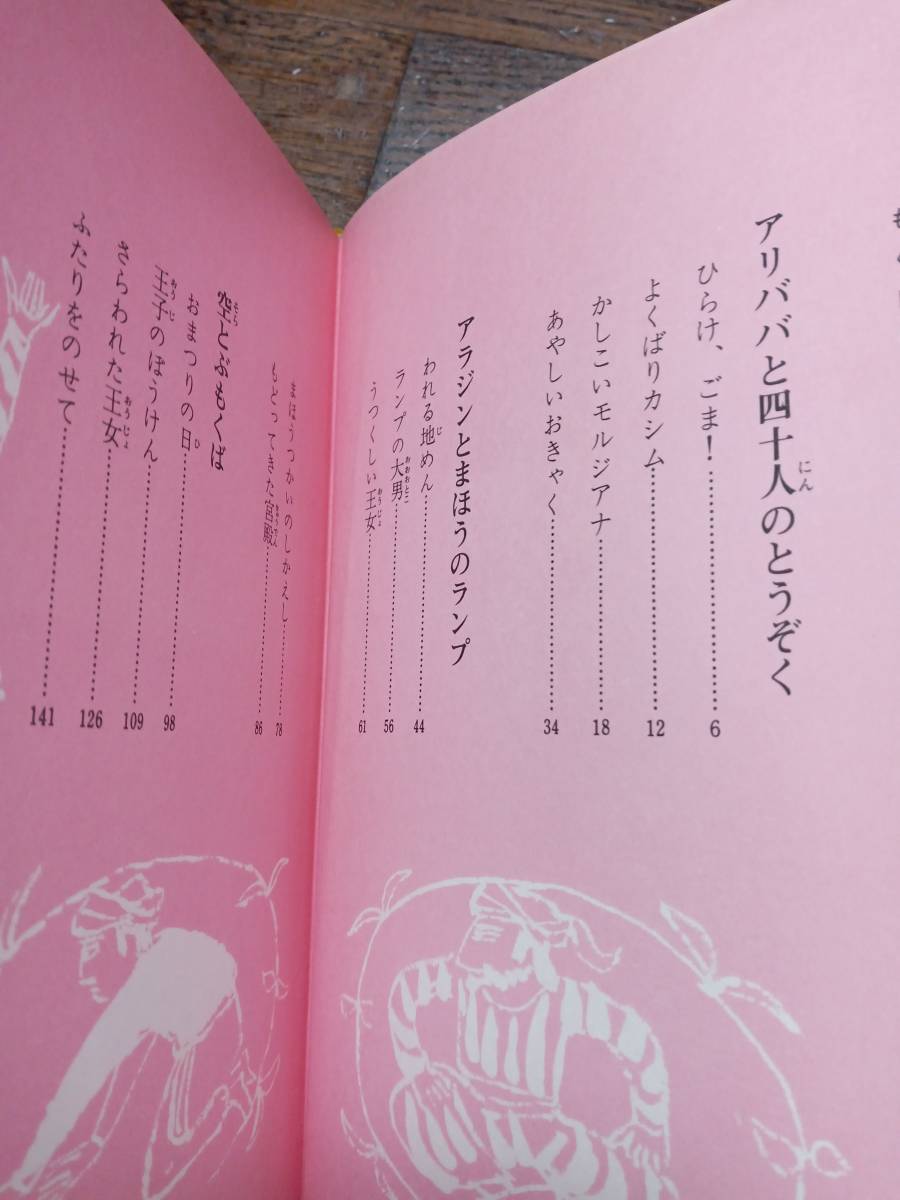 アリババと四十人のとうぞく
ひらけ、ごま!……………6
よくばりカシム……………12
かしこいモルジアナ……………18
あやしいおきゃく……………34
アラジンとまほうのランプ
われる地めん……………44
ランプの大男……………56
うつくしい王女……………61
まほうつかいのしかえし……………78
もどってきた宮殿……………86
空とぶもくば
おまつりの日……………98
王子のぼうけん……………109
さらわれた王女……………126
ふたりをのせて……………141